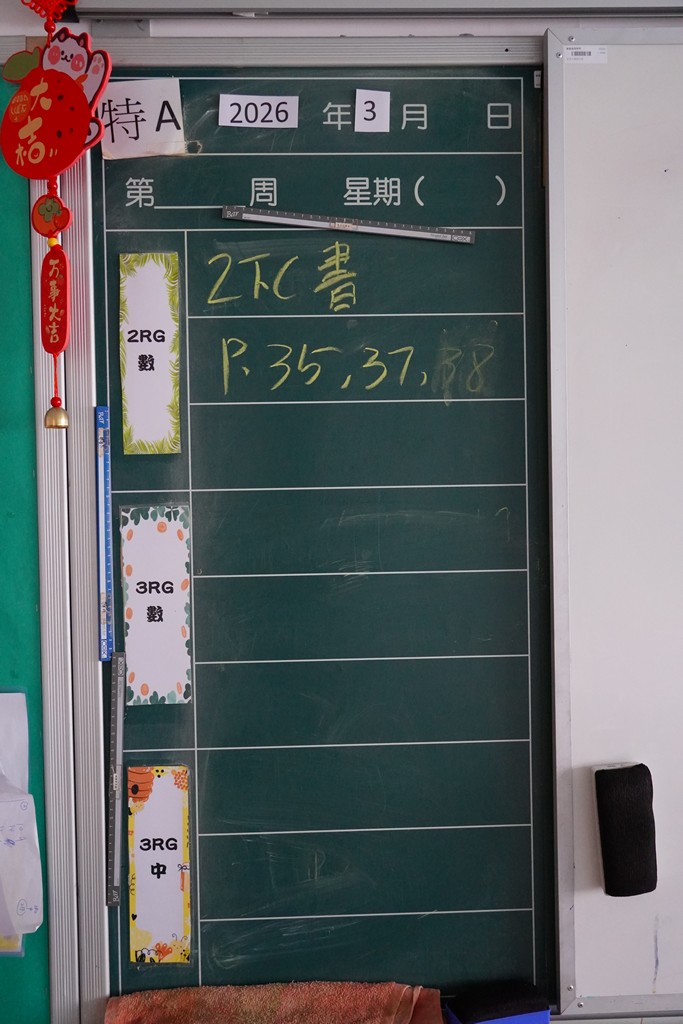 大吉
万事大吉
特A
2026 年 3 月 日
第 周 星期( )
2RG
數
2下C 書
P. 35, 37, 38
3RG
數
3RG
中